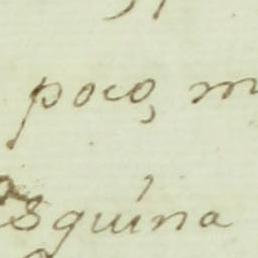 poco, m
sguína